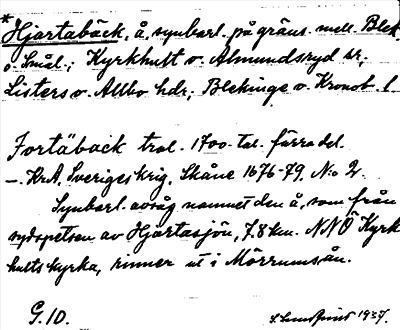 * Hjartabäck, å, synbarl. på gräns. mell. Blek.
o. Smål.; Kyrkhult o. Almundsryd sr,
Listers o. Allbo hdr; Blekinge o. Kronob. l
Fortäback trol. 1700-tal. färra del.
—. KrA, Sveriges krig, Skåne 1676-79, No 2.
Synbarl. avsåg namnet den å, som från
sydspetsen av Hjärtasjön, 7.8 km. NNÖ Kyrk
hults kyrka, rinner ut i Mörrumsån.
G. 10.
1937.